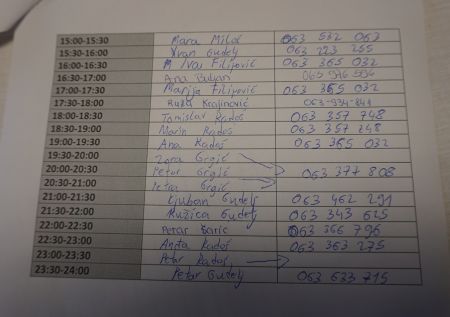 15:00-15:30 Mara Miloš 063 532 063
15:30-16:00 Ivan Gudelj 063 223 255
16:00-16:30 Iva Filipović 063 365 032
16:30-17:00 Ana Buljan 063 976 556
17:00-17:30 Marija Filipović 063 365 032
17:30-18:00 Ruža Krajinović 063-934-841
18:00-18:30 Tomislav Radoš 063 357 748
18:30-19:00 Marin Radoš 063 357 248
19:00-19:30 Ana Radoš 063 365 032
19:30-20:00 Zora Grgić
20:00-20:30 Petar Grgić 063 377 808
20:30-21:00 Petra Grgić
21:00-21:30 Ljuban Gudelj 063 462 291
21:30-22:00 Ružica Gudelj 063 343 625
22:00-22:30 Petar Barić 063 366 796
22:30-23:00 Anita Radoš 063 363 275
23:00-23:30 Petar Radoš
23:30-24:00 Petar Gudelj 063 633 715